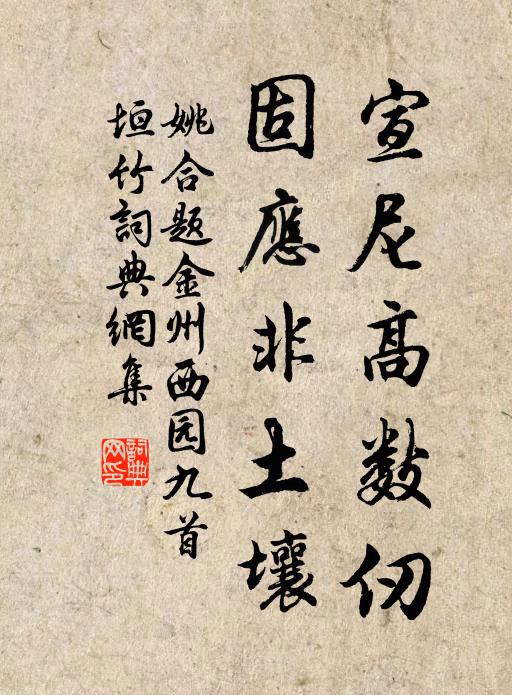 宣尼高数仞
固應非土壤
姚合题金州西园九首
垣竹詞典網集
詞典网印